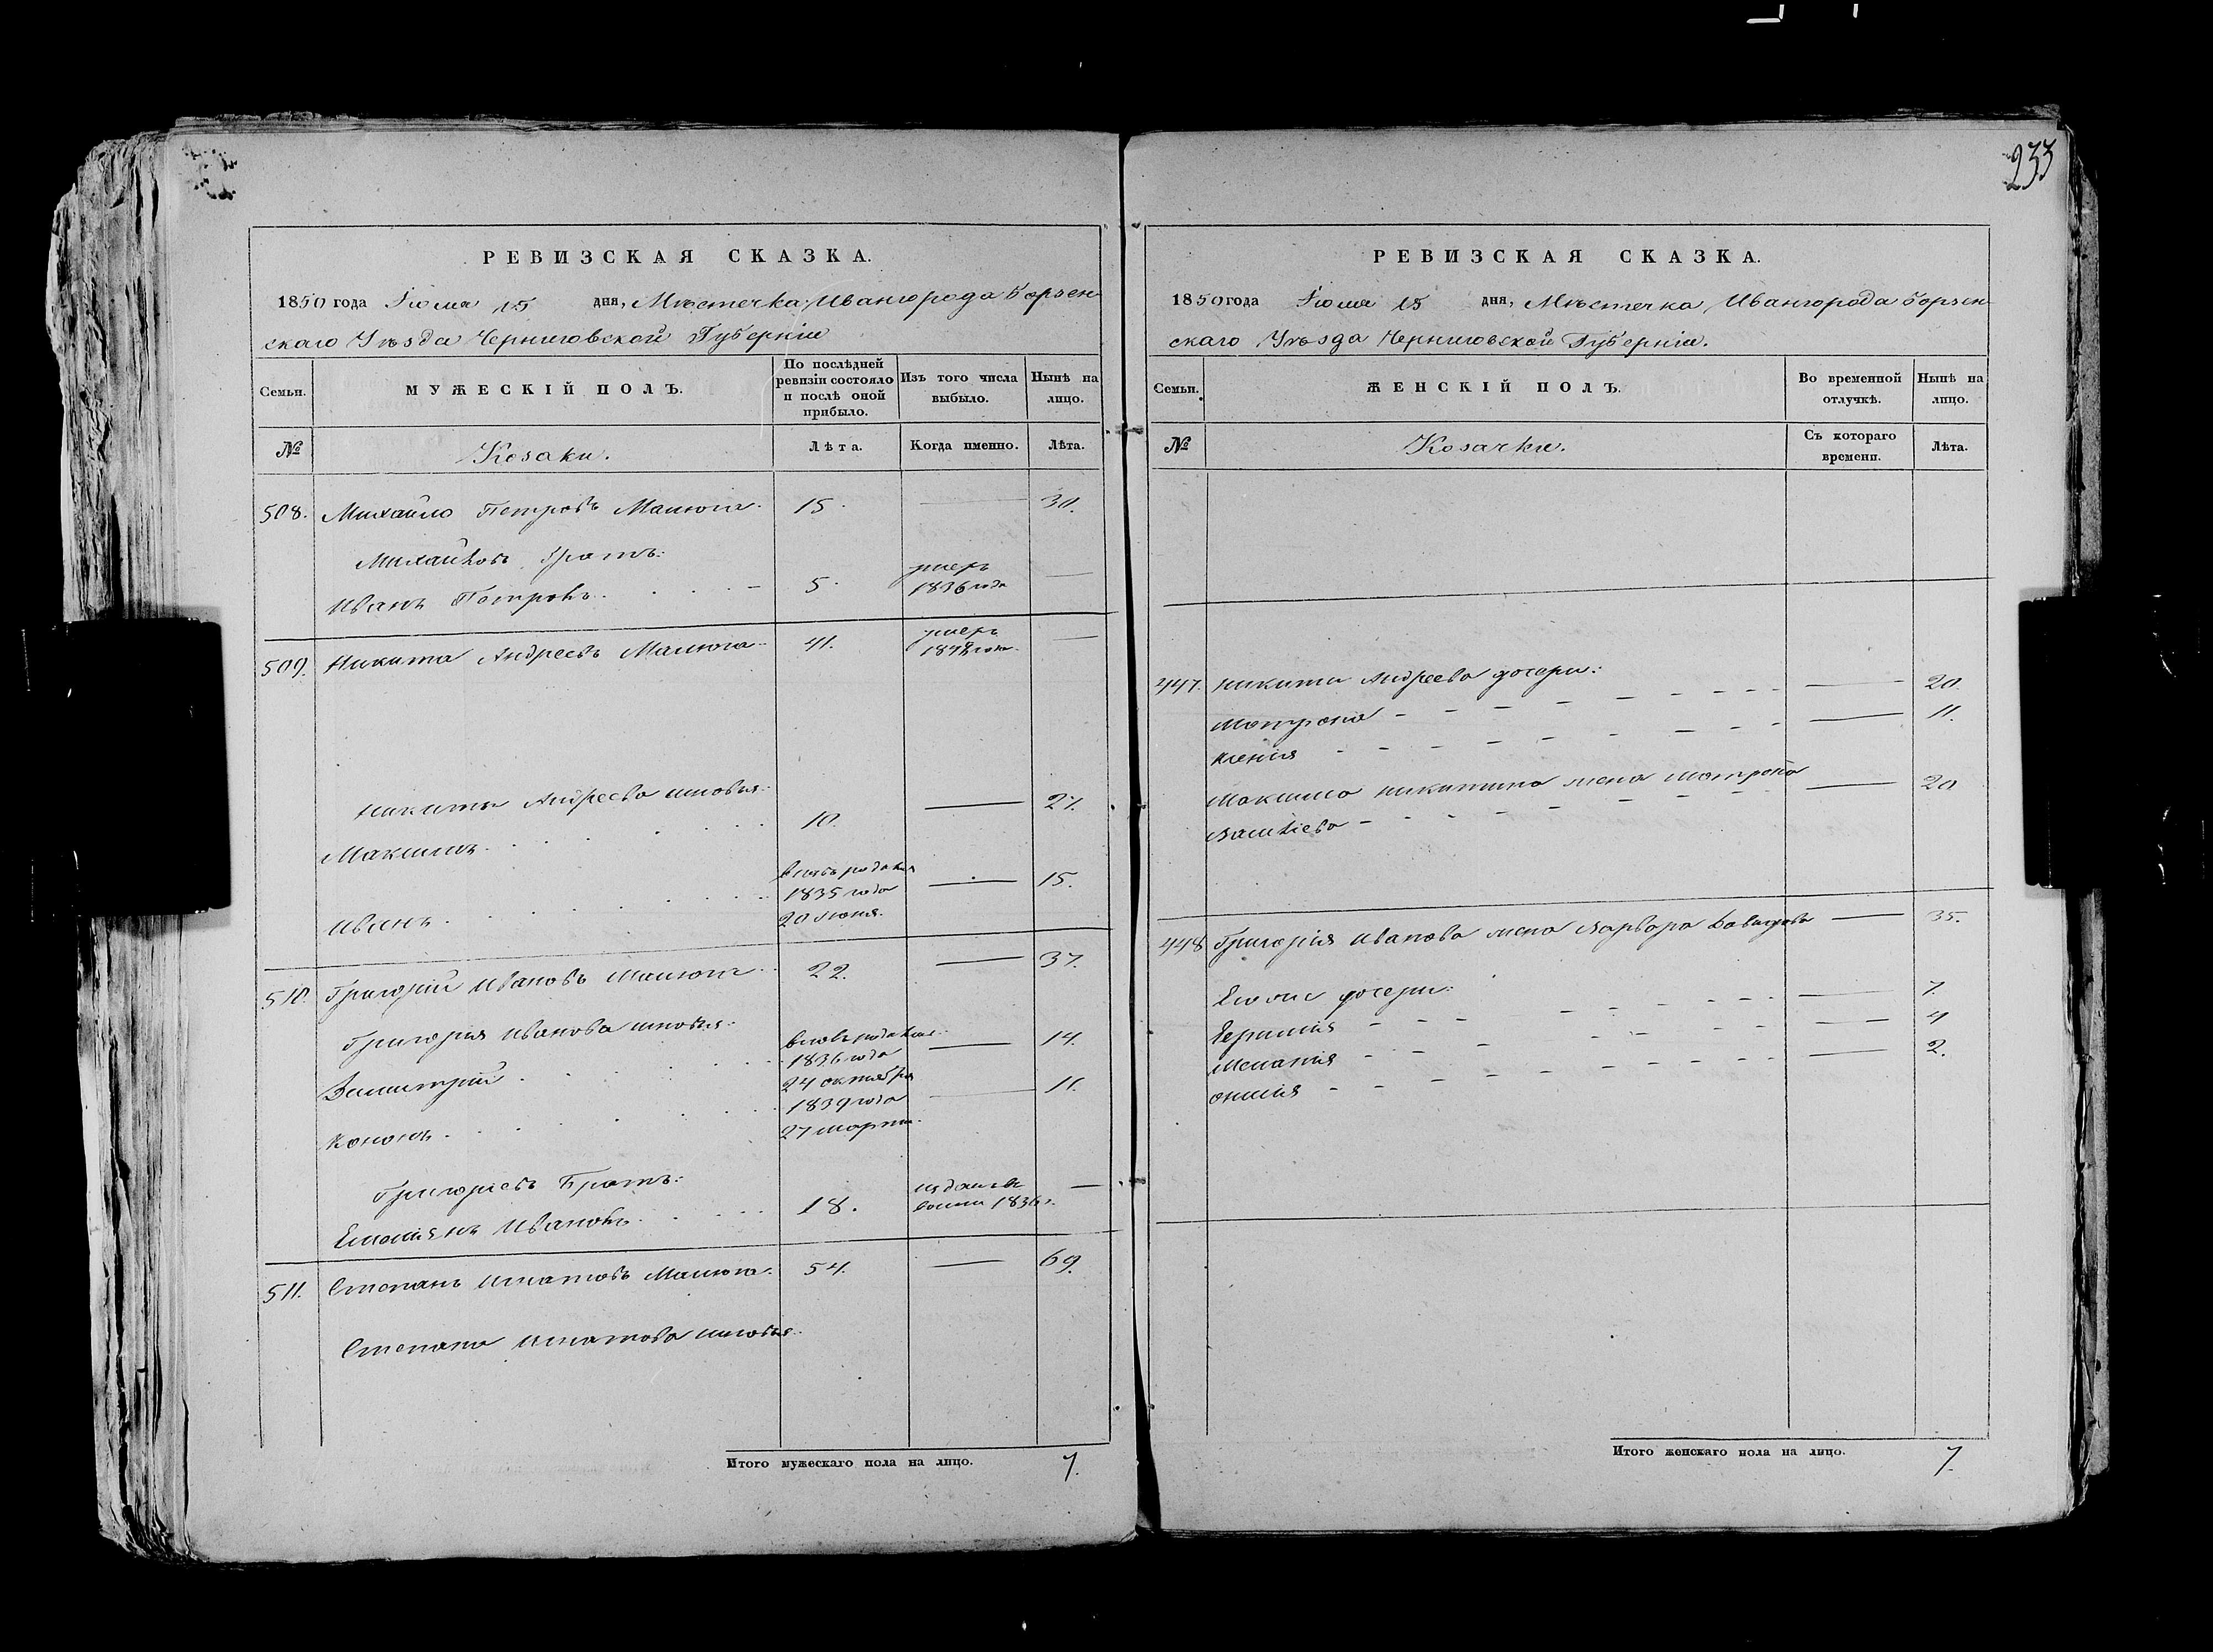 233
РЕВИЗСКАЯ СКАЗКА.
1850 года Іюля 15 дня, Мѣстечка Ивангорода Борзен
скаго Уѣзда Черниговской Губерніи
Семьи.
МУЖЕСКІЙ ПОЛЪ.
По послѣдней ревизіи состояло и послѣ оной прибыло.
Изъ того числа выбыло.
Нынѣ на лицо.
№
Козаки.
Лѣта.
Когда именно.
Лѣта.
508. Михайло Петровъ Малюга. 15. 30.
Михайловъ братъ:
Иванъ Петровъ. 5. умеръ 1836 года
509. Никита Андреевъ Малюга 41. умеръ
Никиты Андреева сыновья:
Максимъ. 10. 27.
Иванъ. вновь рожденъ 1835 года 20 Іюня. 15.
510. Григорій Ивановъ Малюга 22. 37.
Григорія Иванова сыновья:
Димитрій 1836 года 24 октября 14.
Кононъ. 1839 года 27 марта. 11.
Григорьевъ Братъ:
Емельянъ Ивановъ. 18. 1836 г.
511. Степанъ Игнатовъ Малюга. 54. 69.
Степана Игнатова сыновья:
Итого мужескаго пола на лицо. 7.
РЕВИЗСКАЯ СКАЗКА.
1850 года Іюля 15 дня, Мѣстечка Ивангорода Борзен
скаго Уѣзда Черниговской Губерніи.
Семьи.
ЖЕНСКІЙ ПОЛЪ.
Во временной отлучкѣ.
Нынѣ на лицо.
№
Козачки.
Съ котораго времени.
Лѣта.
447. Никиты Андреева дочери:
Мотрона 20.
Ксенія 11.
Максима Никитина жена Мотрона
Васильева 20
448 Григорія Иванова жена Варвара Давидова 35.
Его же дочери:
7.
Меланія 4
2.
Итого женскаго пола на лицо. 7.